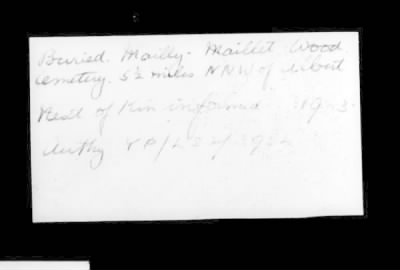 Buried. Mailly-Maillet Wood
cemetery. 5½ miles NNW of Albert
Next of Kin informed
Authy